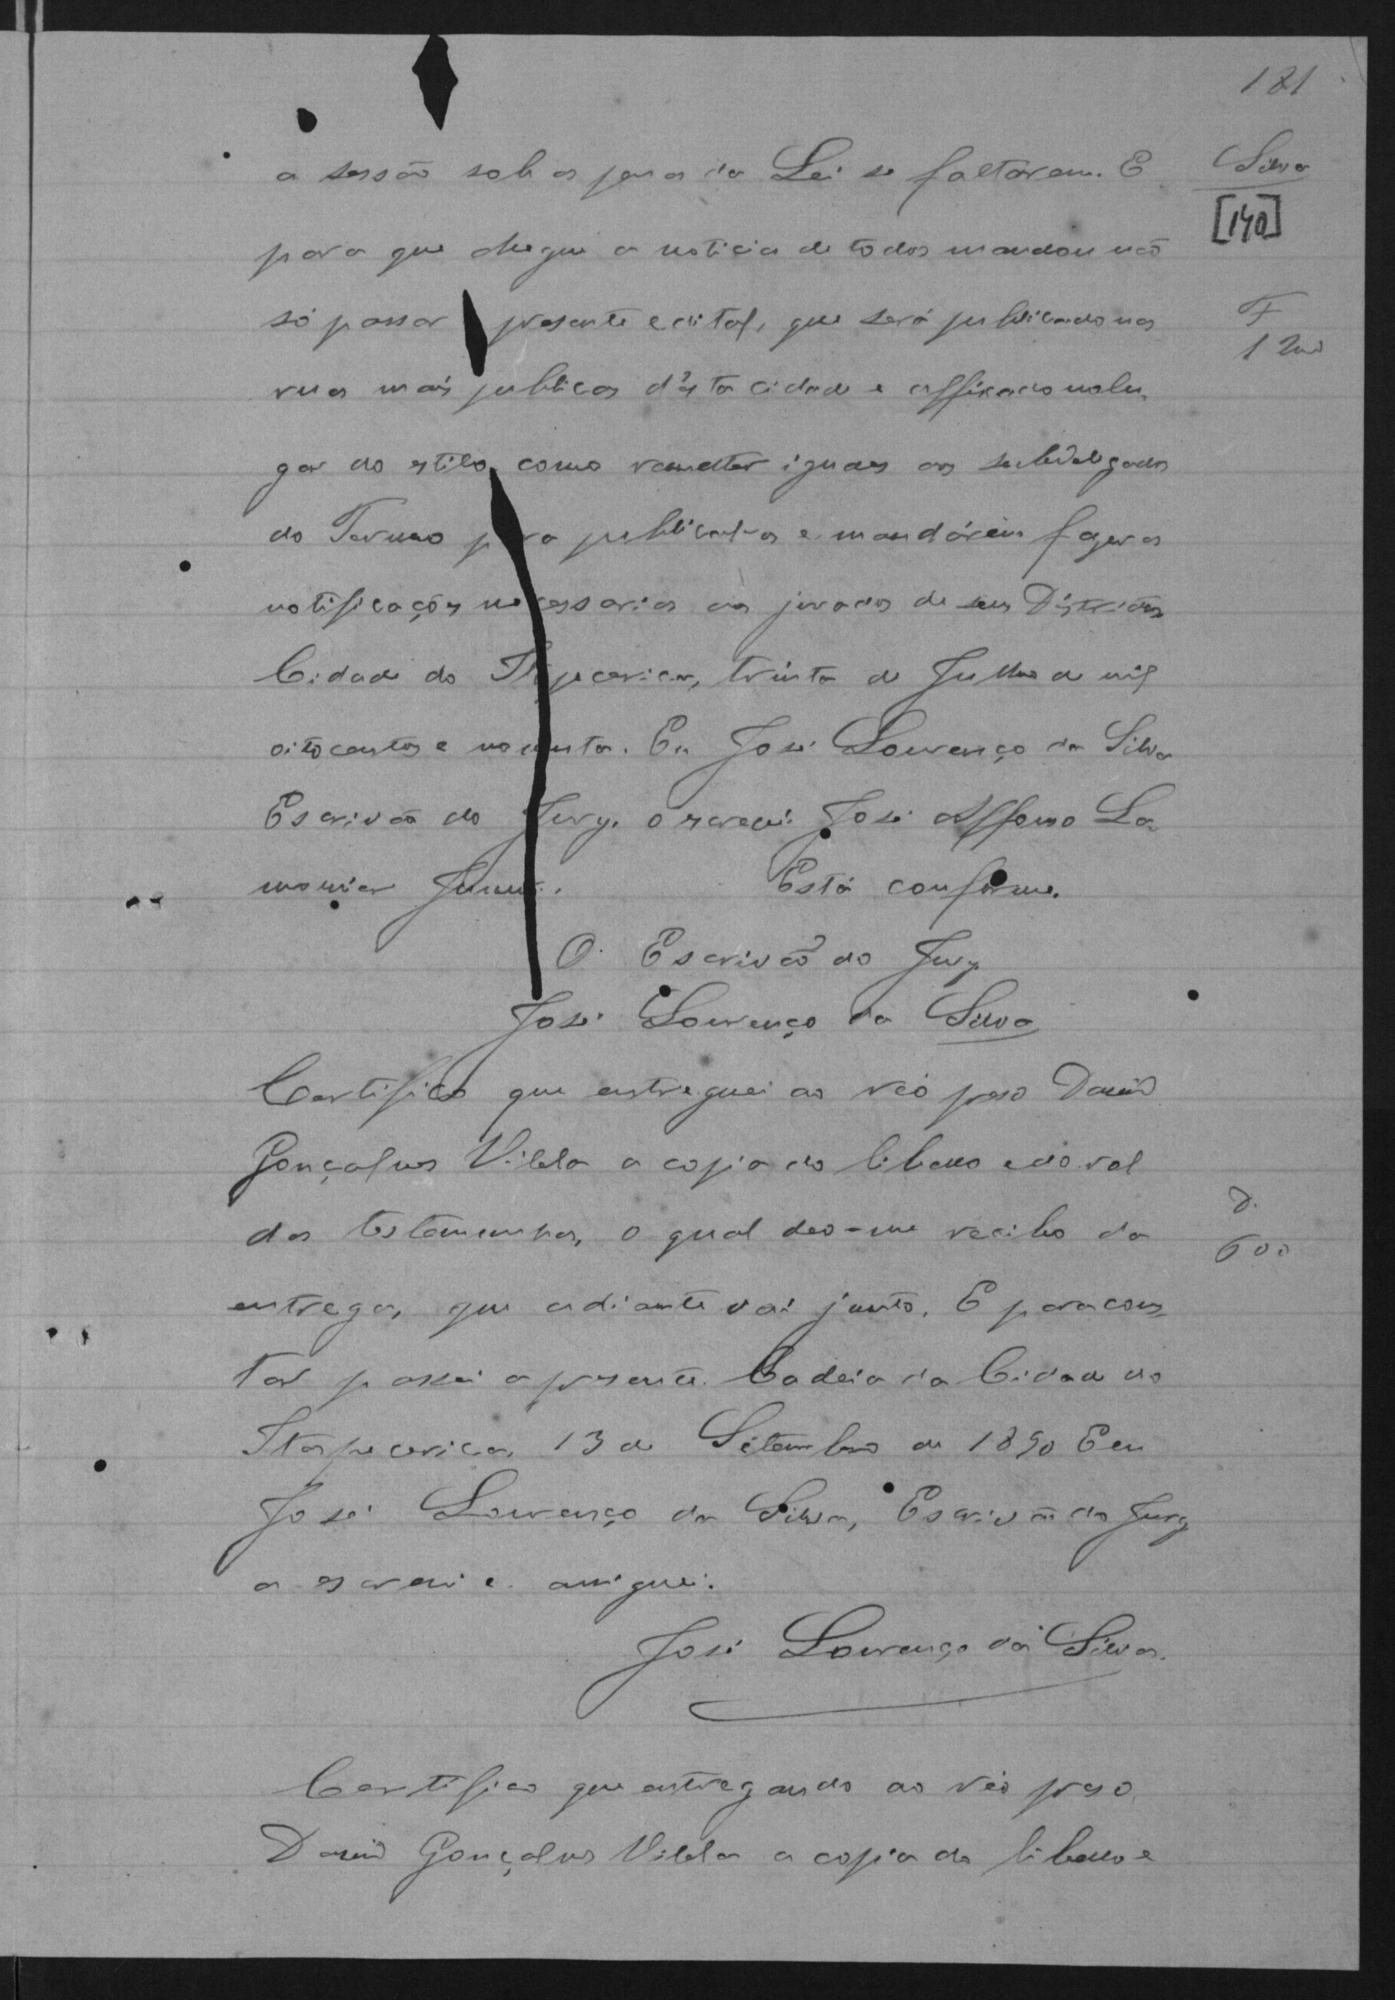 181
Silva
[140]
a sessão sob as penas da Lei se faltarem. E
para que chegue a noticia de todos mandou não
só passar presente edital, que será publicado nas
F
1 200
ruas mais publicas d'esta cidade e affixado no lu-
gar do estilo, como remetter iguaes aos subdelegados
do Termo para publical-os e mandárem fazer as
notificações necessarias aos jurados de seus Districtos
Cidade do Itapecerica, trinta de Julho de mil
oitocentos e noventa. Eu José Lourenço da Silva
Escrivão do Jury o escrevi. José Affonso La
mounier Junior. Está conforme.
O Escrivão do Jury
José Lourenço da Silva
Certifico que entreguei ao réo preso David
Gonçalves Vilela a copia do libello e do rol
das testemunhas, o qual deo-me recibo da
D.
600
entrega, que adiante vai junto. E para cons-
tar passei a presente. Cadeia da Cidade do
Itapecerica, 13 de Setembro de 1890 E eu
José Lourenço da Silva, Escrivão do Jury
a escrevi e assignei.
José Lourenço da Silva.
Certifico que entregando ao réo preso
David Gonçalves Vilela a copia do libello e